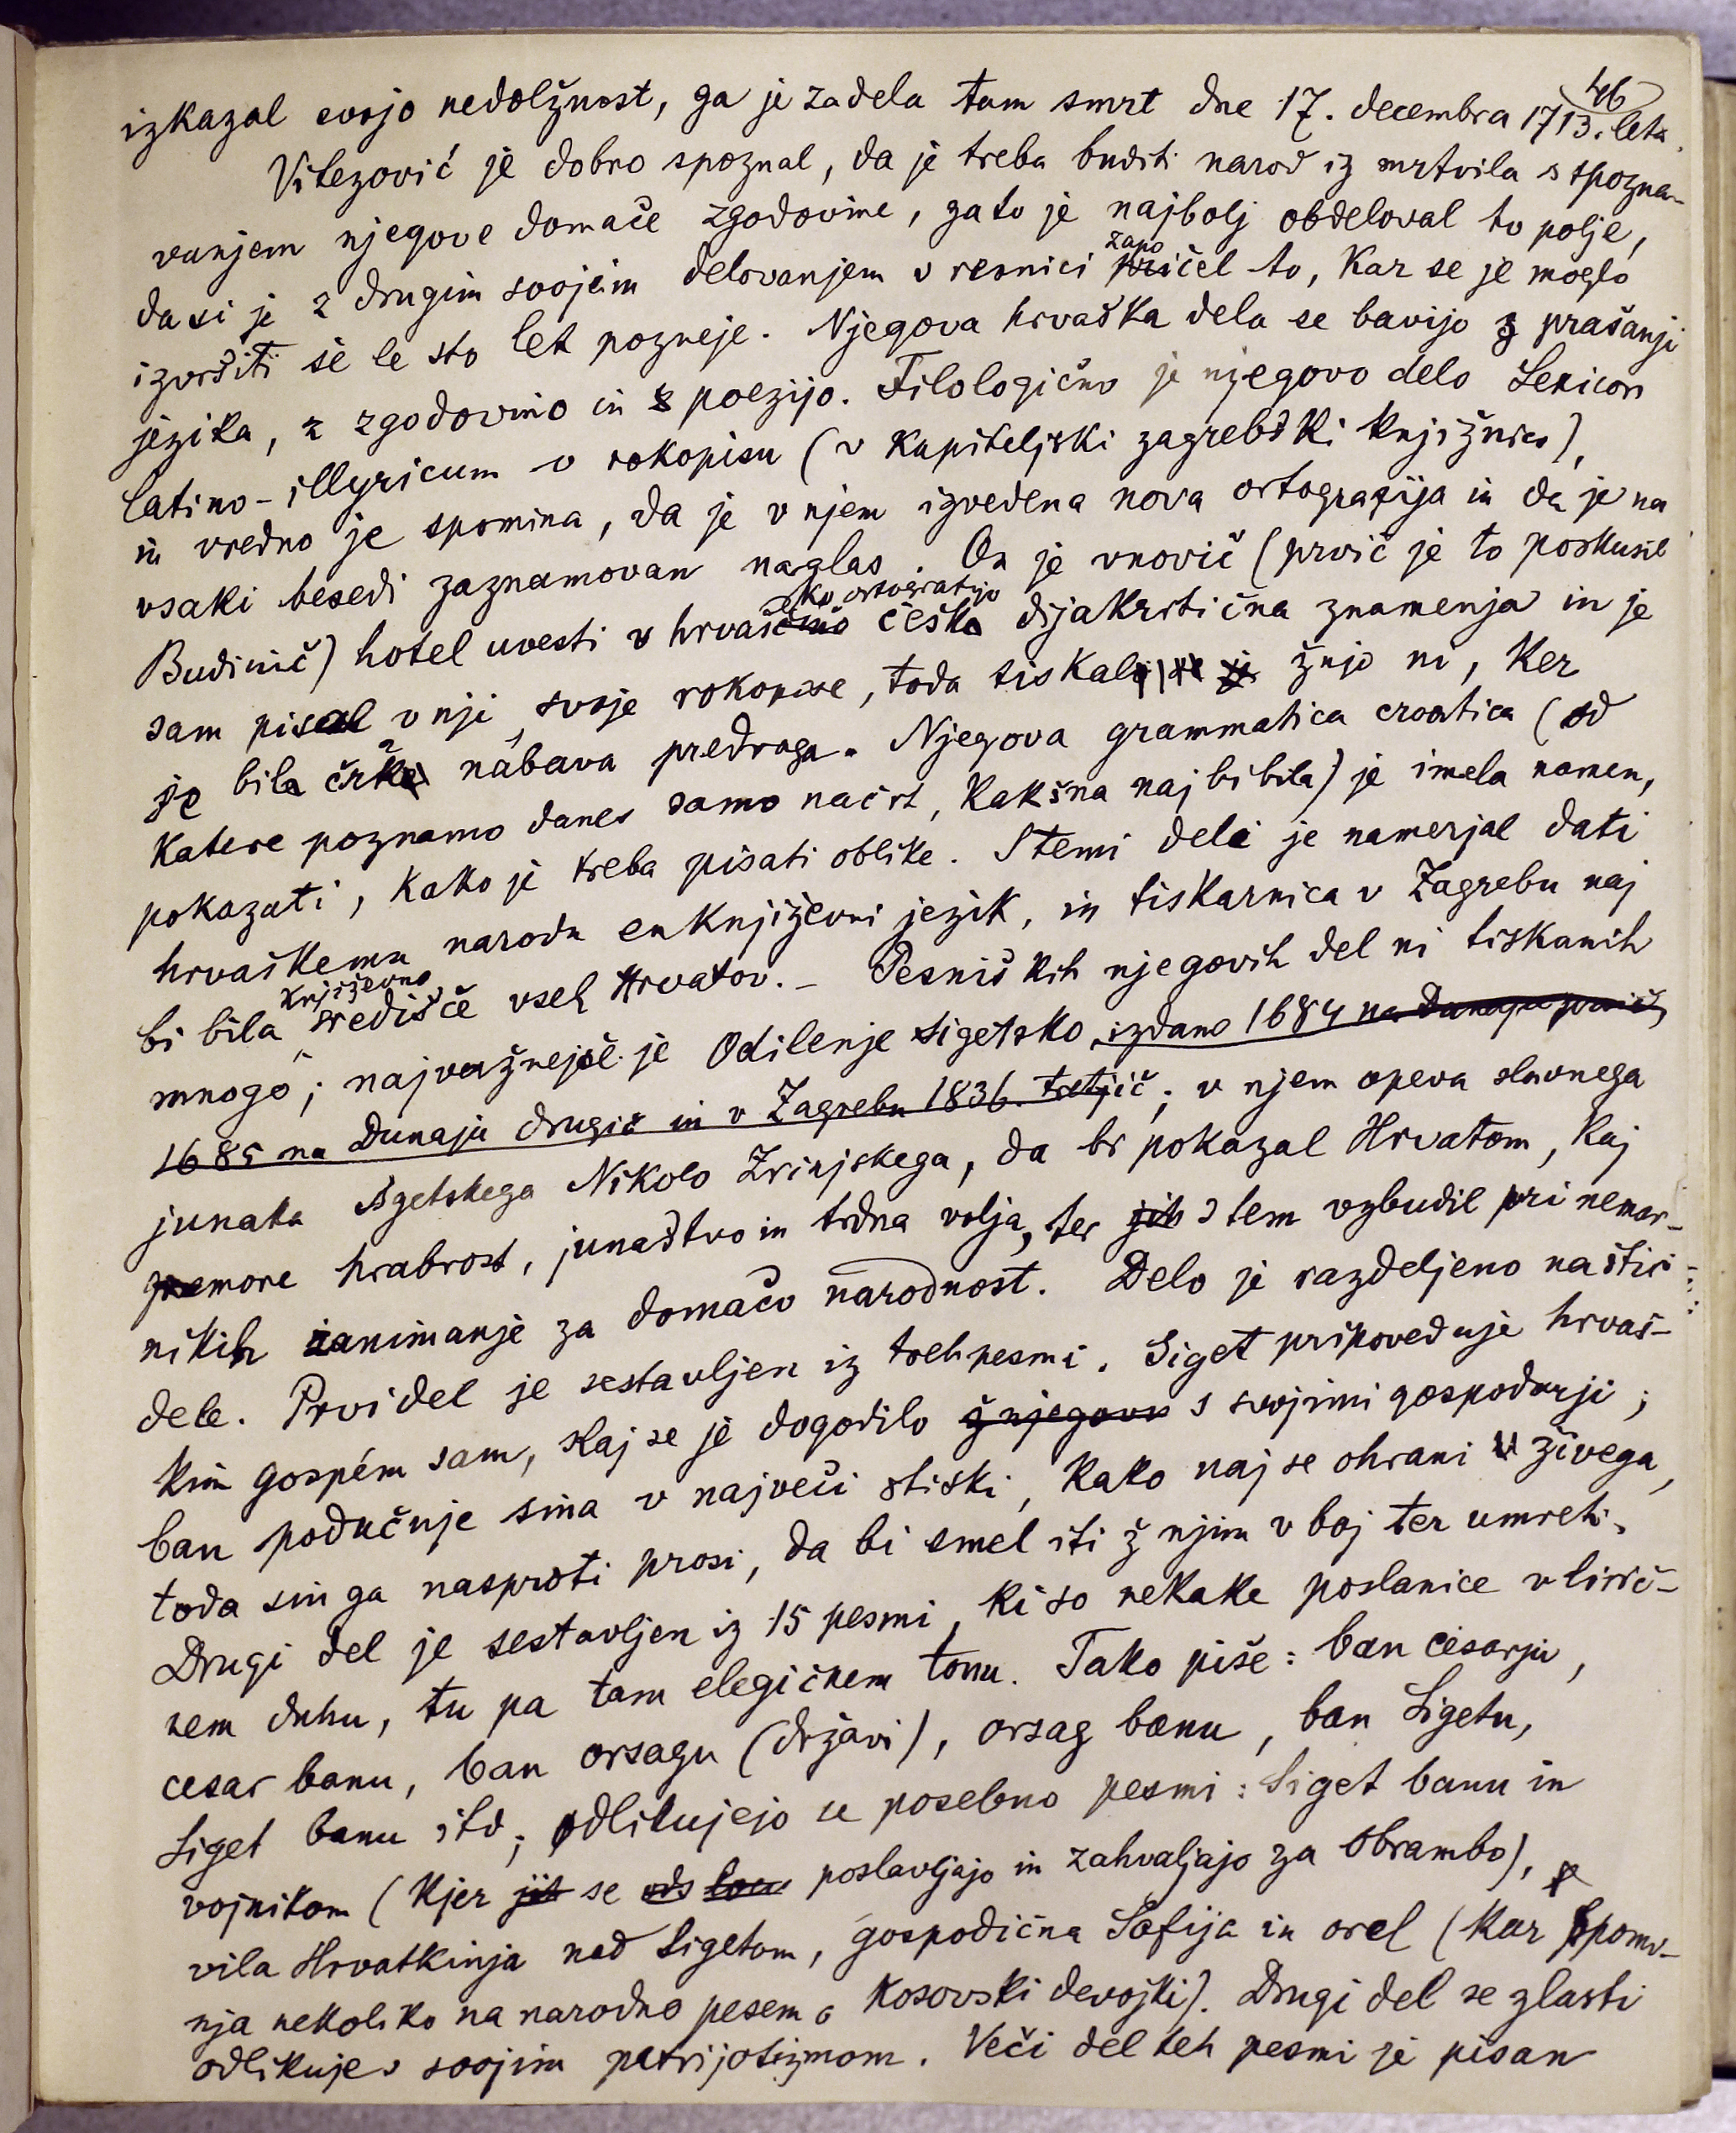 46
izkazal svojo nedolžnost, ga je zadela tam smrt dne 17. decembra 1713. leta.
Vitezović je dobro spoznal, da je treba buditi narod iz mrtvila s spozna-
vanjem njegove domače zgodovine, zato je najbolj obdeloval to polje,
dasi je z drugim svojim delovanjem v resnici započel to, kar se je moglo
izvršiti še le sto let pozneje. Njegova hrvaška dela se bavijo z prašanji
jezika, z zgodovino in s poezijo. Filologično je njegovo delo Lexicon
latino-illyricum v rokopisu (v kapiteljski zagrebški knjižnici),
in vredno je spomina, da je v njem izvedena nova ortografija in da je na
vsaki besedi zaznamovan naglas. On je vnovič (prvič je to poskusil
Budinič) hotel uvesti v hrvaško ortografijo češka dijakritična znamenja in je
sam pisal v nji svoje rokopise, toda tiskal žnjo ni, ker
je bila črk nabava predraga. Njegova grammatica croatica (od
katere poznamo danes samo načrt, kakšna naj bi bila) je imela namen,
pokazati, kako je treba pisati oblike. S temi deli je namerjal dati
hrvaškemu narodu en književni jezik, in tiskarnica v Zagrebu naj
bi bila književno središče vseh Hrvatov. – Pesniških njegovih del ni tiskanih
mnogo; najvažnejše je Odilenje sigetsko, izdano 1684 na Dunaju prvič,
1685 na Dunaju drugič in v Zagrebu 1836. tretjič; v njem opeva slavnega
junaka sigetskega Nikolo Zrinjskega, da bi pokazal Hrvatom, kaj
premore hrabrost, junaštvo in trdna volja, ter jih s tem vzbudil pri nemar-
nikih zanimanje za domačo narodnost. Delo je razdeljeno na štiri
dele. Prvi del je sestavljen iz treh pesmi. Siget pripoveduje hrvaš-
kim gospém sam, kaj se je dogodilo ž njegovi s svojimi gospodarji;
ban podučuje sina v največi stiski, kako naj se ohrani živega,
toda sin ga nasproti prosi, da bi smel iti ž njim v boj ter umreti.
Drugi del je sestavljen iz 15 pesmi, ki so nekake poslanice v lirič-
nem duhu, tu pa tam elegičnem tonu. Tako piše: ban cesarju,
cesar banu, ban orsagu (državi), orsag banu, ban Sigetu,
Siget banu itd; odlikujejo se posebno pesmi: Siget banu in
vojnikom (kjer jih se poslavljajo in zahvaljajo za obrambo),
vila Hrvatkinja nad Sigetom, gospodična Sofija in orel (kar spomi-
nja nekoliko na narodno pesem o kosovski devojki). Drugi del se zlasti
odlikuje s svojim patrijotizmom. Veči del teh pesmi je pisan